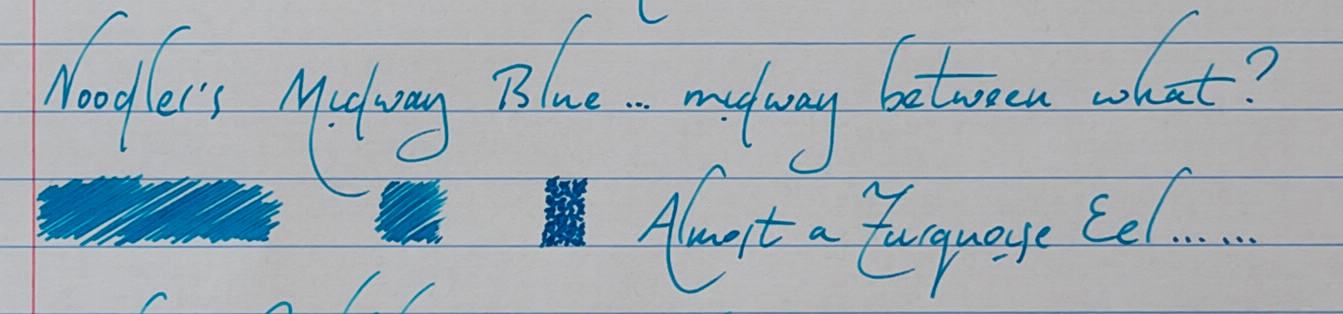 Noodler's Midway Blue... midway between what?
Almost a Turquoise Eel......